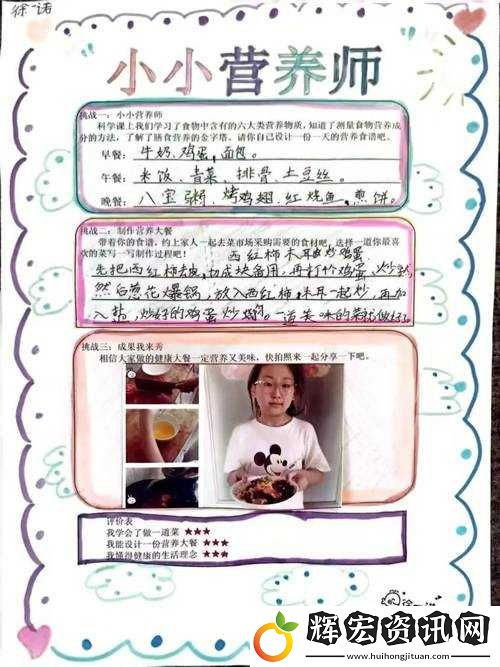 徐一诺
小小营养师
挑战一：小小营养师
科学课上我们学习了食物中含有的六大类营养物质，知道了测量食物营养成
分的方法，了解了膳食营养的金字塔。请你自己设计一份一天的营养食谱吧。
早餐：牛奶、鸡蛋，面包。
午餐：米饭、青菜、排骨、土豆丝。
晚餐：八宝粥、烤鸡翅、红烧鱼，煎饼。
挑战二：制作营养大餐
带着你的食谱，约上家人一起去菜市场采购需要的食材吧，选择一道你最喜
欢的菜写一写制作过程吧！西红柿木耳炒鸡蛋
先把西红柿去皮，切成块备用，再打个鸡蛋，炒熟
然后葱花爆锅，放入西红柿，木耳一起炒，再加
入盐，炒好的鸡蛋炒。一道美味的菜就做好了
挑战三：成果我来秀
相信大家做的健康大餐一定营养又美味，快拍照来一起分享一下吧。
评价表
我学会了做一道菜 ★★★
我能设计一份营养大餐 ★★★
我懂得健康的生活理念 ★★★
辉宏资讯网
www.huihongjituan.com